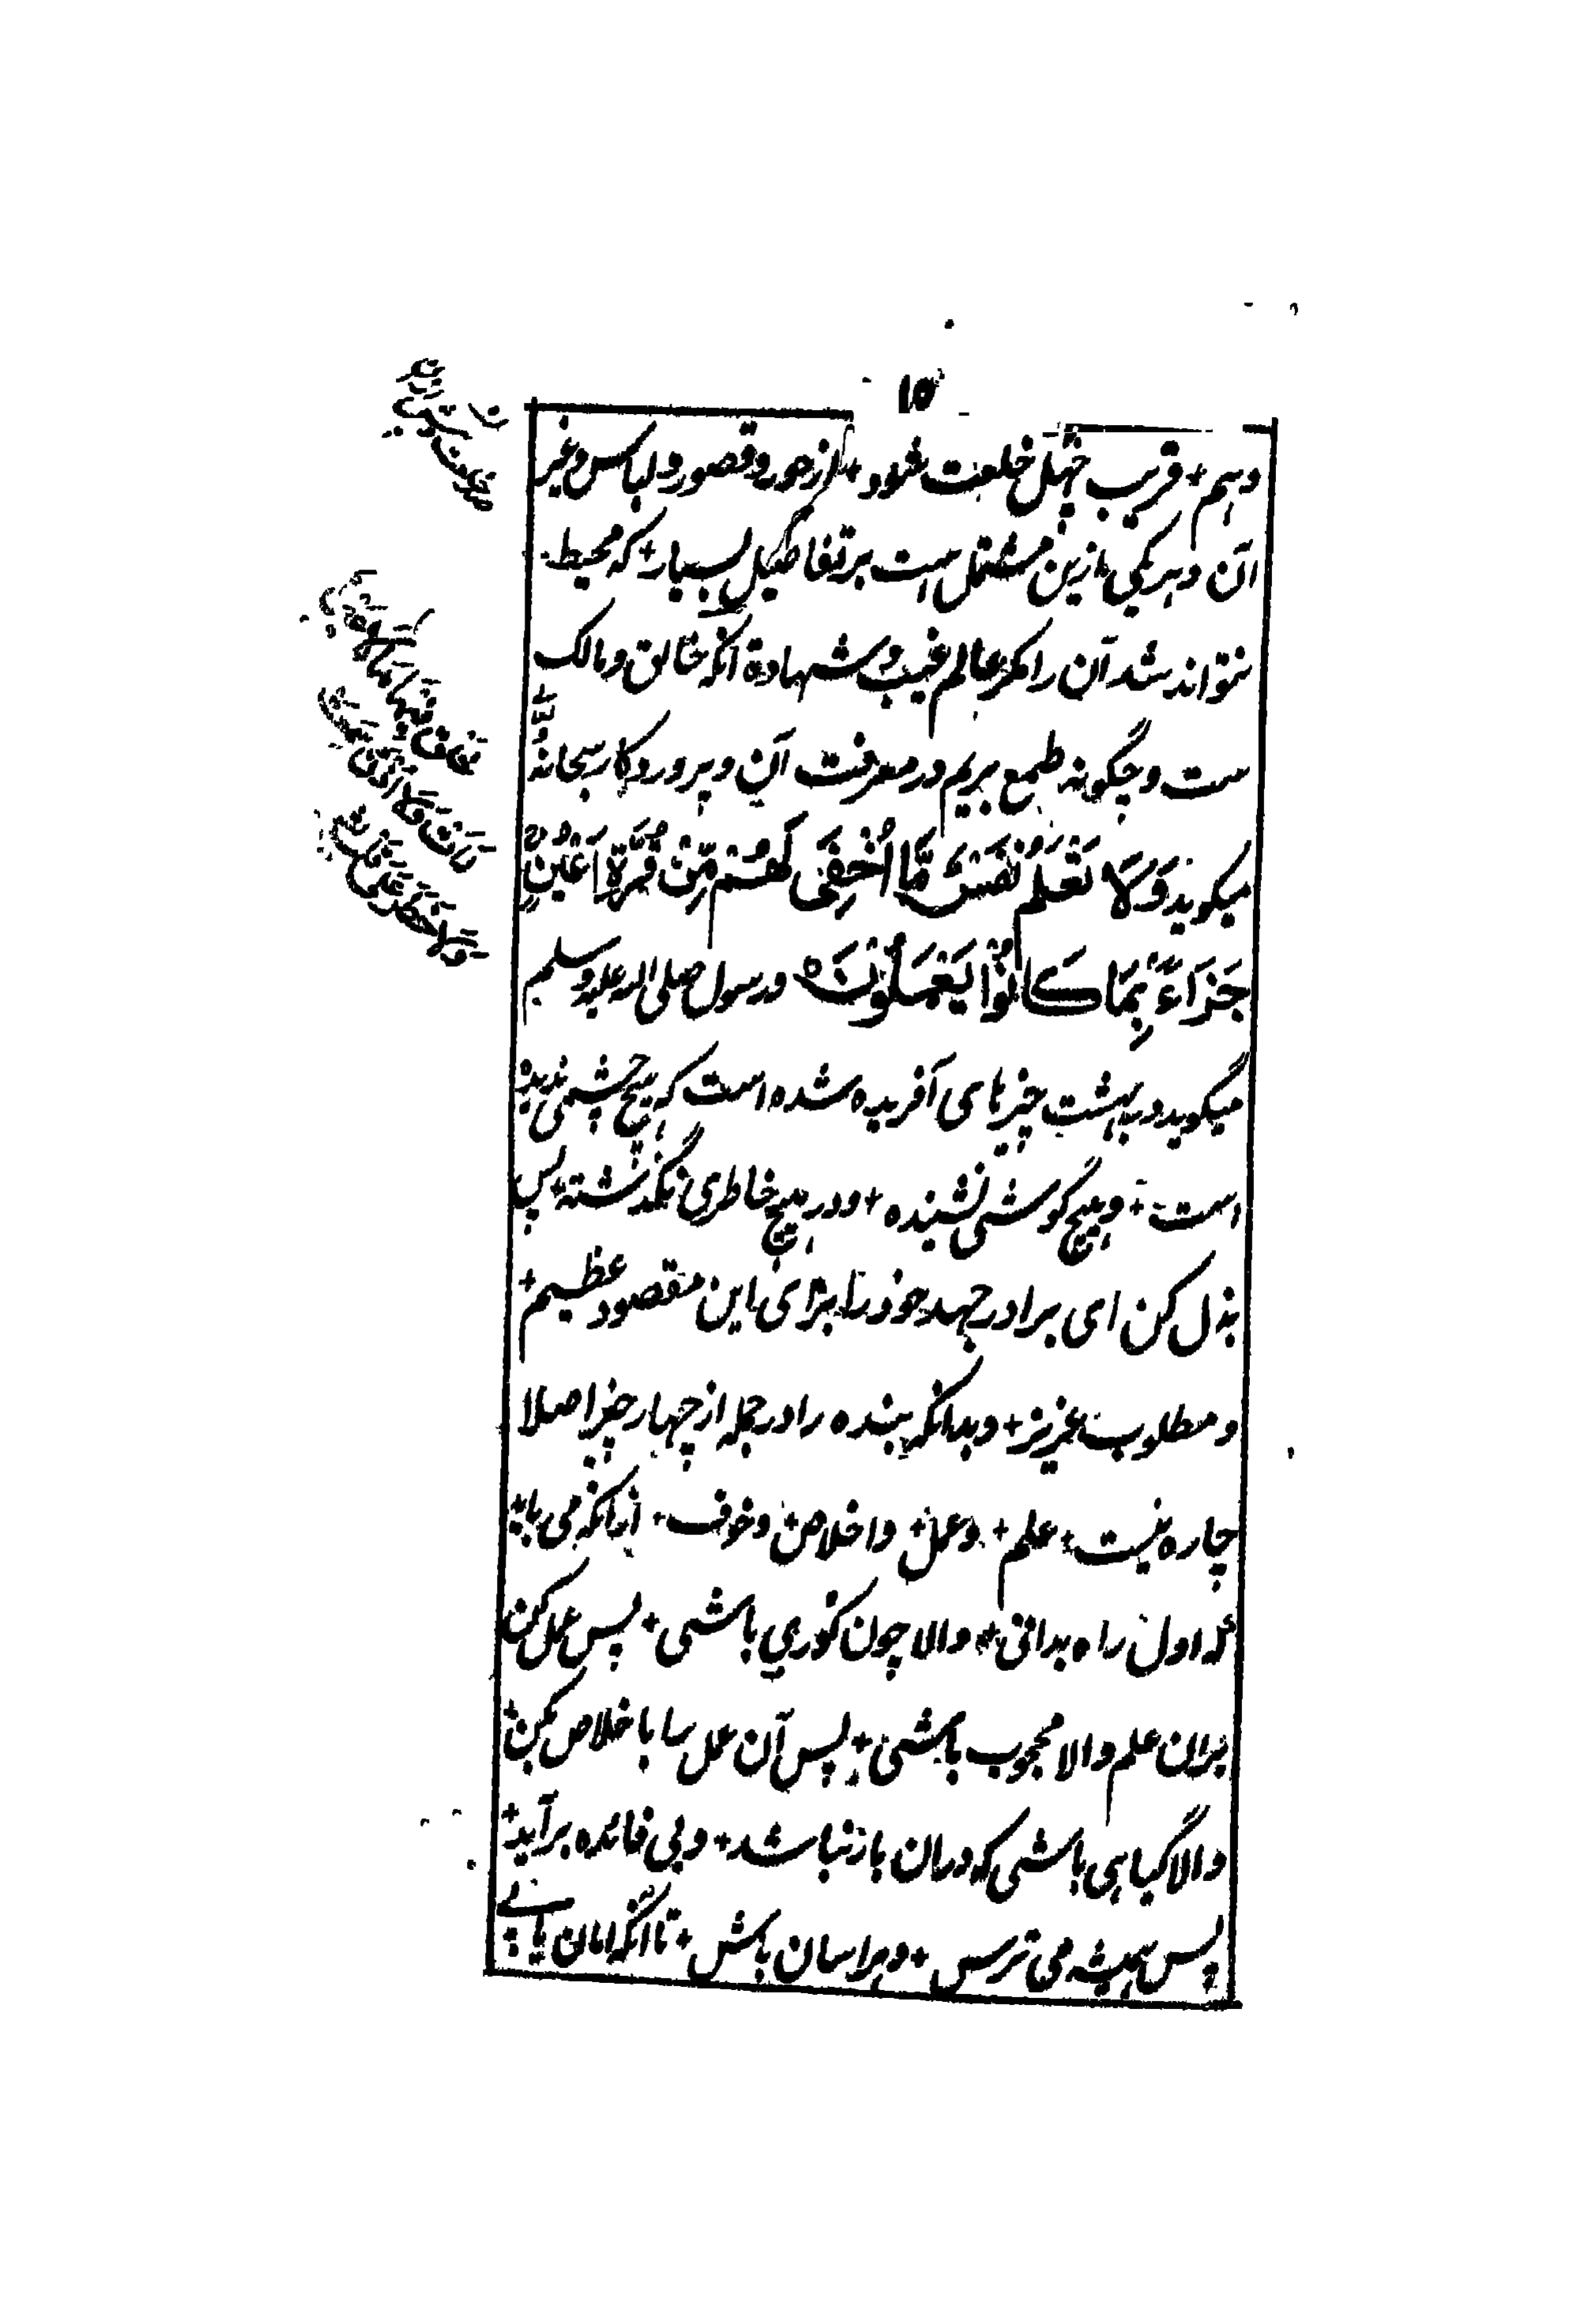 ۱۵
دہم + قریب چہل خلعت شود + از حور و قصور و لباس و غیر
آن و ہر یکی ازین مشتمل است بر تفاصیل بسیار + کہ محیط
نتواند شد آن را مگر عالم غیب و شہادۃ آنکہ خالق و مالک
ست و چگونہ طمع بریم در معرفت آن و پروردگار سبحانہ
میگوید وَلَا تَعْلَمُ نَفْسٌ مَّا اُخْفِیَ لَهُمْ مِّنْ قُرَّةِ اَعْیُنٍ
جَزَاءً بِمَا كَانُوْا یَعْمَلُوْنَ ہ و رسول صلی اللہ علیہ وسلم
میگوید در بہشت چیزہای آفریدہ شدہ است کہ ہیچ چشمی ندیدہ
است + و ہیچ گوشی نشنیدہ + و در ہیچ خاطری نگذشتہ + پس
بذل کن ای برادر جہد خود را برای این مقصود عظیم +
و مطلوب عزیز + و بدانکہ بندہ را در جملہ از چہار چیز اصلا
چارہ نیست + علم + و عمل + و اخلاص + و خوف + ازانکہ می باید
کہ اول راہ بدانی + والا چون کوری باشی + پس عمل کن
بران علم والا محجوب باشی + پس آن عمل را باخلاص کن +
والا گیاہی باشی کہ دران بار نباشد + و بی فائدہ بر آید +
پس ہمیشہ می ترس + و ہراسان باش + تا آنکہ امان یابی